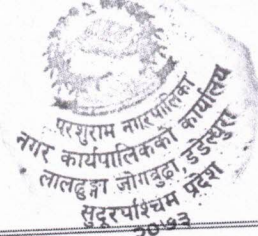 परशुराम नगरपालिका
नगर कार्यपालिकाको कार्यालय
लालढुङ्गा जोगबुढा डडेल्धुरा
सुदूरपश्चिम प्रदेश
२०७३